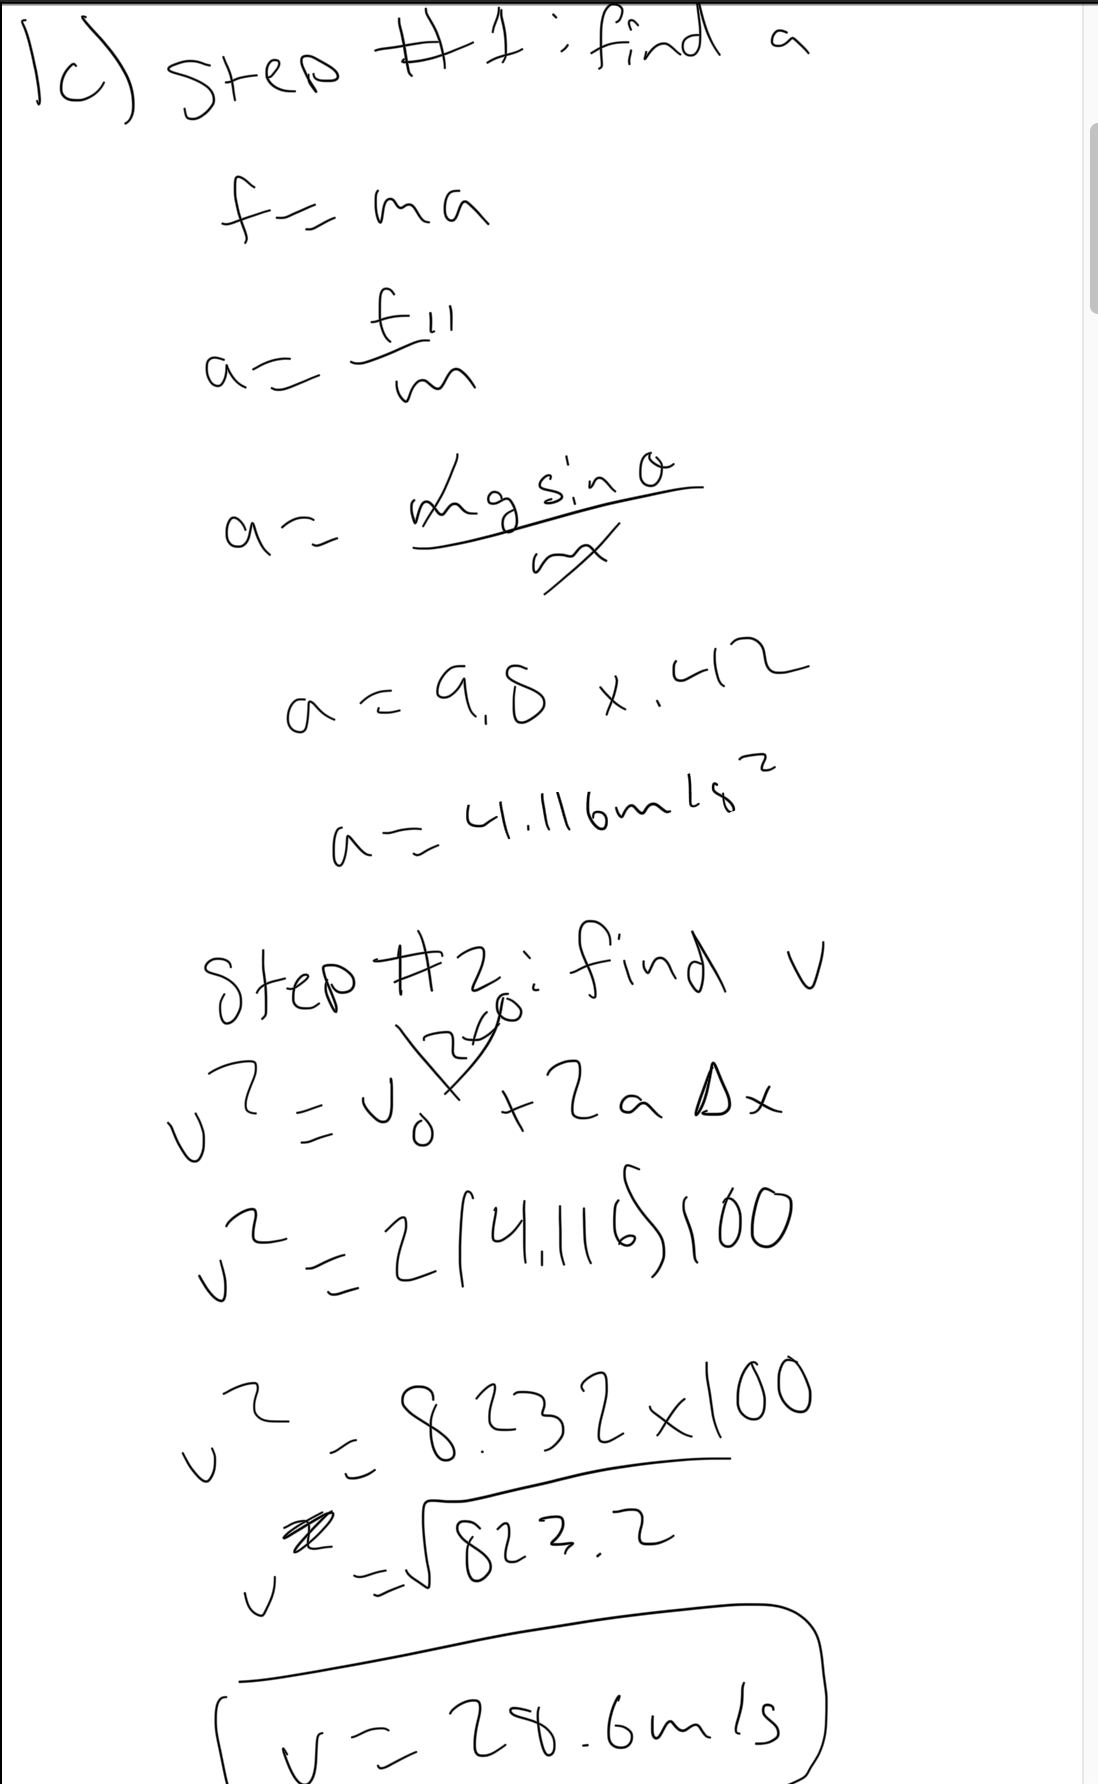 1c) Step #1: find a
f = ma
a = f11/m
a = mg sin θ/m
a = 9.8 x .42
a = 4.116m/s²
Step #2: find v
v² = v₀² + 2aΔx
v² = 2(4.116)100
v² = 8.232x100
v = √823.2
v = 28.6m/s